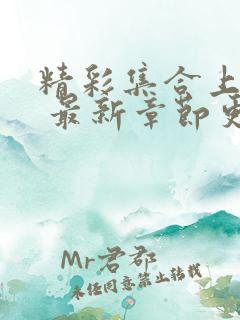 精彩集合上
最新章節更
Mr君郡
未任同意禁止转载